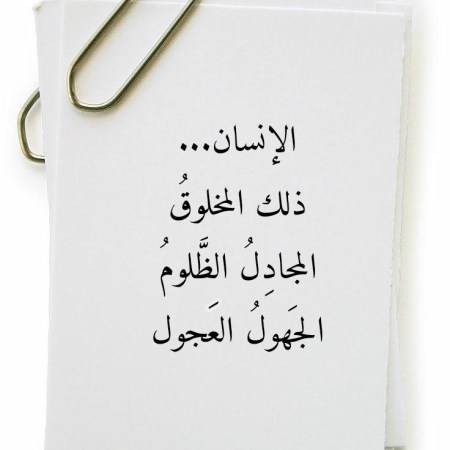 الإنسان...
ذلك المخلوقُ
المجادِلُ الظَّلومُ
الجَهولُ العَجول